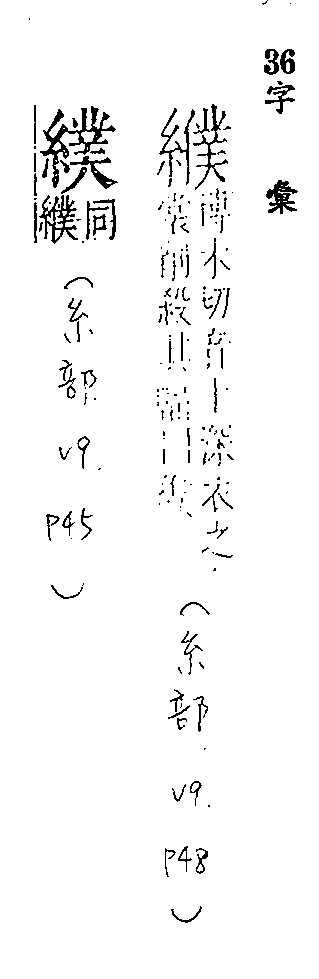 36字彙
纀 博木切音卜深衣之
裳削殺其幅曰纀
(糸部. v9. P48)
同
纀
(糸部. v9. P45)